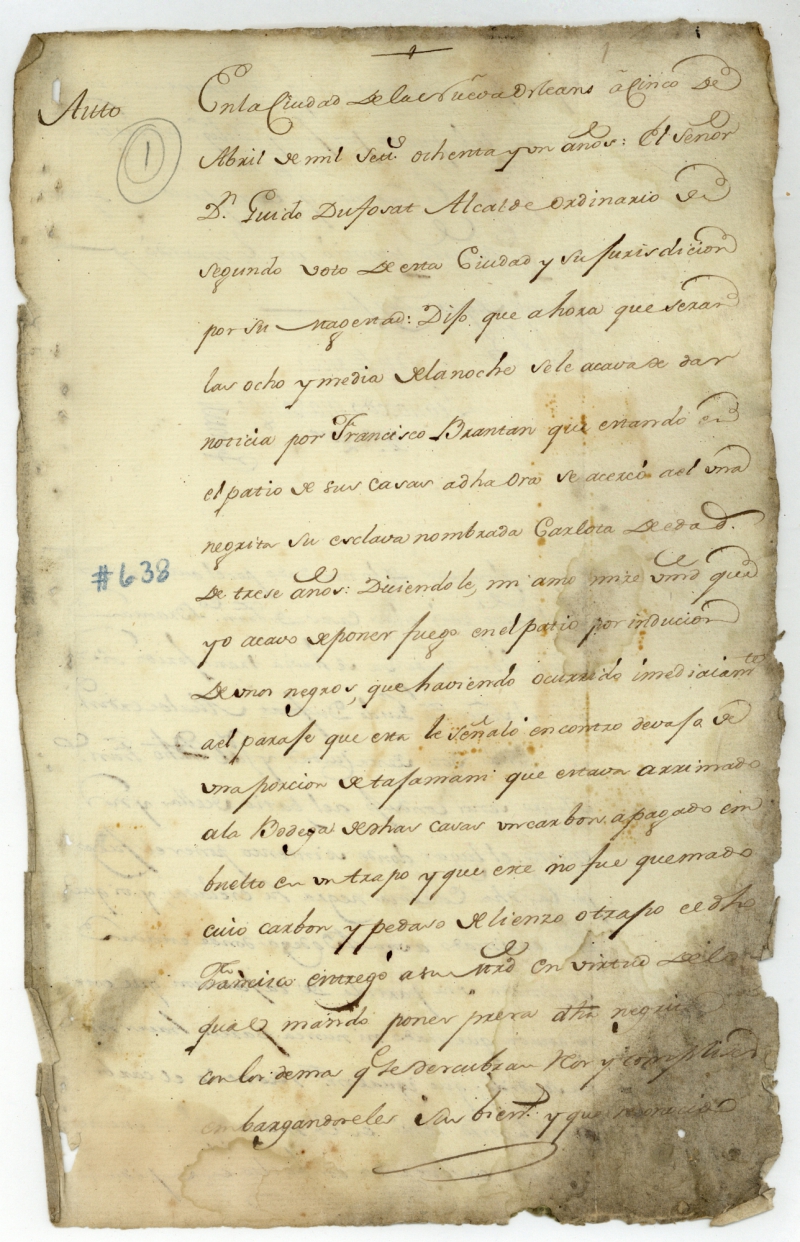 Auto
1
En la Ciudad de la Nueva Orleans à Cinco de
Abril de mil Setᵗ. ochenta y un años: El señor
Dⁿ. Guido Dufosat Alcalde ordinario de
segundo voto de esta Ciudad y su Jurisdicion
por su Magestad: Dijo que ahora que seran
las ocho y media de la noche se le acava de dar
noticia por Francisco Brantan que estando en
el patio de sus casas adha ora se acercó a el una
negrita su esclava nombrada Carlota de edad.
#638
de trese años: Diciendole, mi amo mire Vmd que
yo acavo de poner fuego en el patio por inducion
de unos negros, que haviendo ocurrido imediatamᵗᵉ
a el paraje que esta le señaló encontro devajo de
una porcion de tajamani que estava arrimado
a la Bodega de dhas casas un carbon apagado em
buelto en un trapo y que este no fue quemado
cuio carbon y pedaso de lienzo o trapo el dho
Francisco entregó a su Mrd en virtud de lo
qual mandó poner presa a dha negrita
con los demas qᵉ se descubran Reos y complises
embargandoseles sus bienˢ. y que